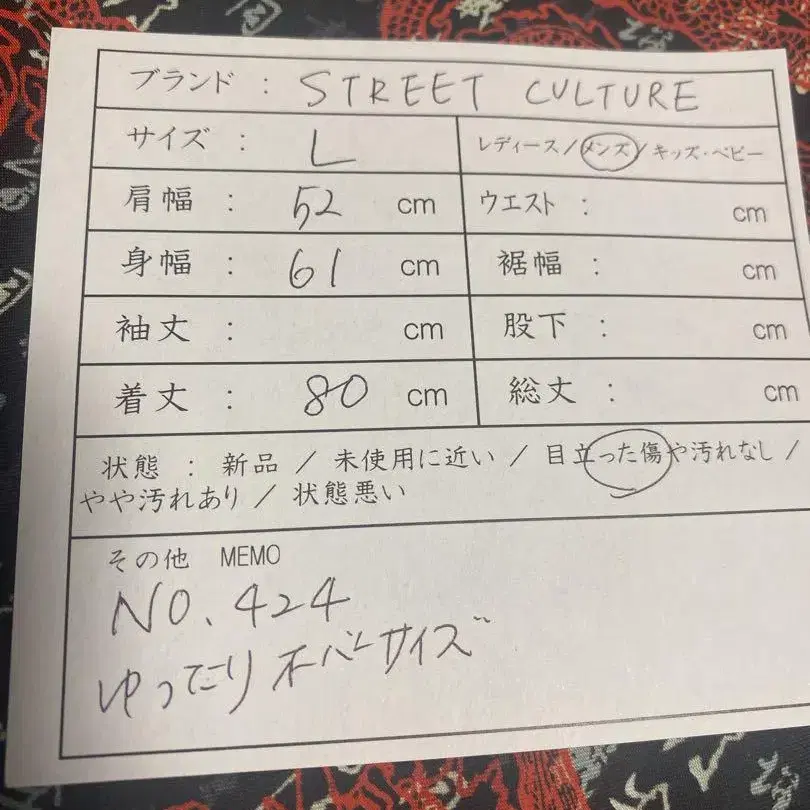 ブランド : STREET CULTURE
サイズ : L レディース/メンズ/キッズ・ベビー
肩幅 : 52 cm ウエスト : cm
身幅 : 61 cm 裾幅 : cm
袖丈 : cm 股下 : cm
着丈 : 80 cm 総丈 : cm
状態 : 新品 / 未使用に近い / 目立った傷や汚れなし /
やや汚れあり / 状態悪い
その他 MEMO
NO.424
ゆったりオーバーサイズ